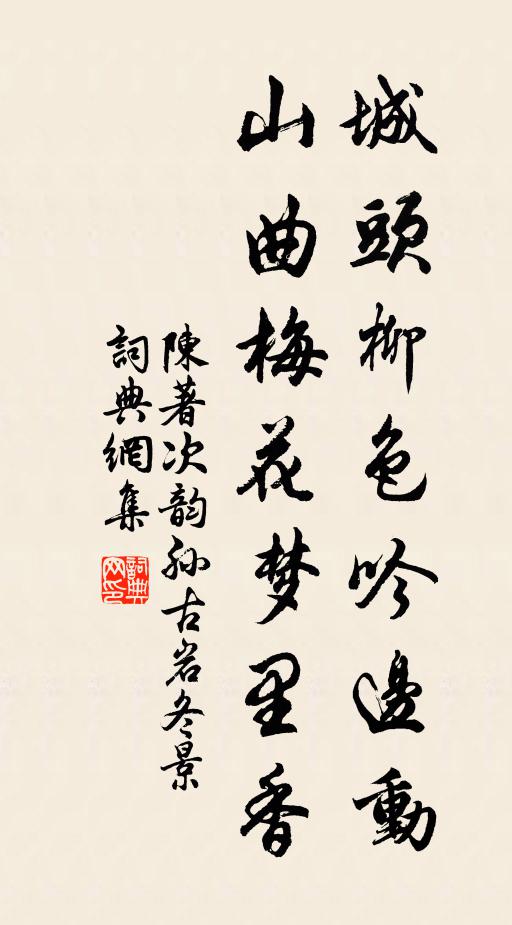 城頭柳色吟邊動
山曲梅花梦里香
陳著次韵孙古岩冬景
詞典網集
詞典网印